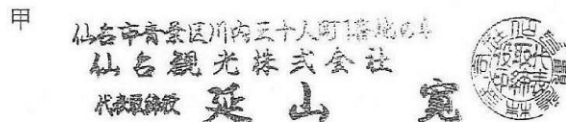 甲
仙台市青葉区川内三十人町1番地の4
仙台観光株式会社
代表取締役 延山 寛